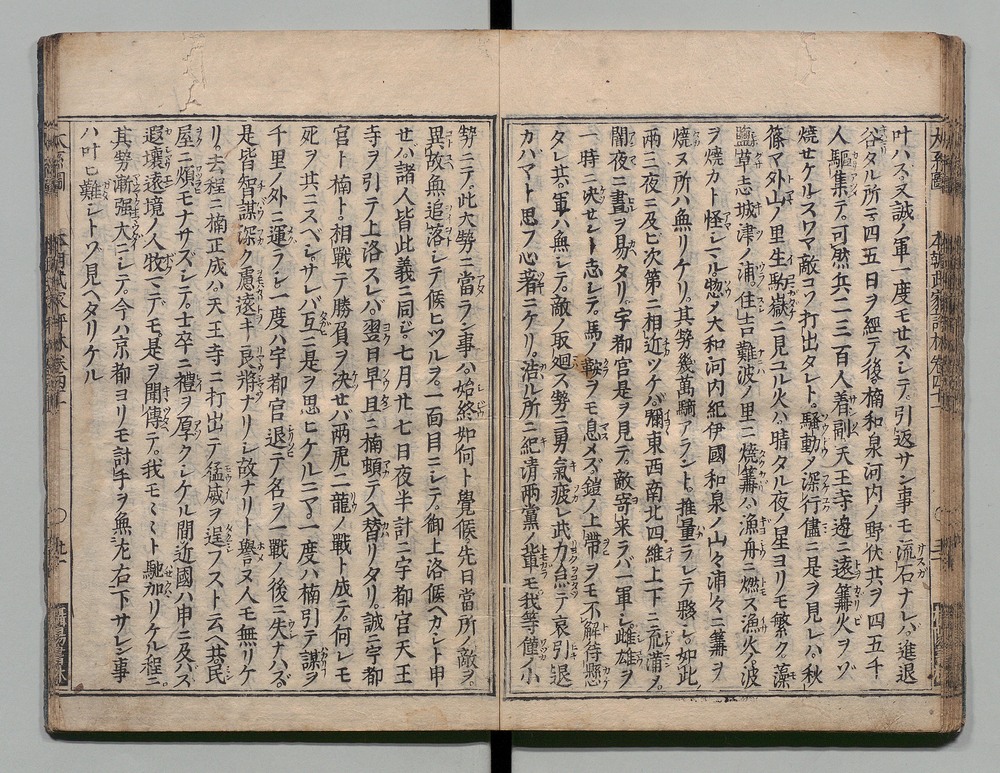 叶ハズ又誠ノ軍一度モセズシテ引返サン事モ流石ナレバ進退
谷タル所ニ四五日ヲ經テ後楠和泉河内ノ野伏共ヲ四五千
人驅集テ可然兵二三百人差副天王寺邊ニ遠篝火ヲゾ
燒セケルスワマ敵コソ打出タレト騒動ノ深行儘ニ是ヲ見レハ秋
篠ヤ外山ノ里生駒嶽ニ見ユル火ハ晴タル夜ノ星ヨリモ繁ク藻
鹽草志城津ノ浦住吉難波ノ里ニ燒篝ハ漁舟ニ燃ス漁火ノ波
ヲ燒カト怪シマル惣メ大和河内紀伊國和泉ノ山々浦々ニ篝ヲ
燒ヌ所ハ無リケリ其勢幾萬騎アラント推量シテ夥シ如此
兩三夜ニ及ヒ次第ニ相近ツケバ弥東西南北四維上下ニ充滿メ
闇夜ニ晝ヲ易タリ宇都宮是ヲ見テ敵寄来ラバ一軍シ雌雄ヲ
一時ニ决セント志シテ馬ノ鞍ヲモ息メズ鎧ノ上帶ヲモ不解待懸
タレ共軍ハ無シテ敵ノ取廻ス勢ニ勇氣疲レ武力怠テ哀引退
カバヤト思フ心著ニケリ浩ル所ニ紀清兩黨ノ輩モ我等僅ノ小
勢ニテ此大勢ニ當ラン事ハ始終如何ト覺候先日當所ノ敵ヲ
異故無追落シテ候ヒツルヲ一面目ニシテ御上洛候ヘカシト申
セハ諸人皆此義ニ同ジ七月廿七日夜半計ニ宇都宮天王
寺ヲ引テ上洛スレバ翌日早旦ニ楠頓テ入替リタリ誠ニ宇都
宮ト楠ト相戰テ勝負ヲ决セバ兩虎二龍ノ戰ト成テ何レモ
死ヲ共ニスベシサレバ互ニ是ヲ思ヒケルニヤ一度ハ楠引テ謀ヲ
千里ノ外ニ運ラシ一度ハ宇都宮退テ名ヲ一戰ノ後ニ失ナハズ
是皆智謀深ク慮遠キ良將ナリシ故ナリト譽ヌ人モ無リケ
リ去程ニ楠正成ハ天王寺ニ打出テ猛威ヲ逞フスト云ヘ共民
屋ニ煩モナサズシテ士卒ニ禮ヲ厚クシケル間近國ハ申ニ及バズ
遐壤遠境ノ人牧マデモ是ヲ聞傳テ我モ〱ト馳加リケル程ニ
其勢漸强大ニシテ今ハ京都ヨリモ討手ヲ無左右下サレン事
ハ叶ヒ難シトソ見ヘタリケル